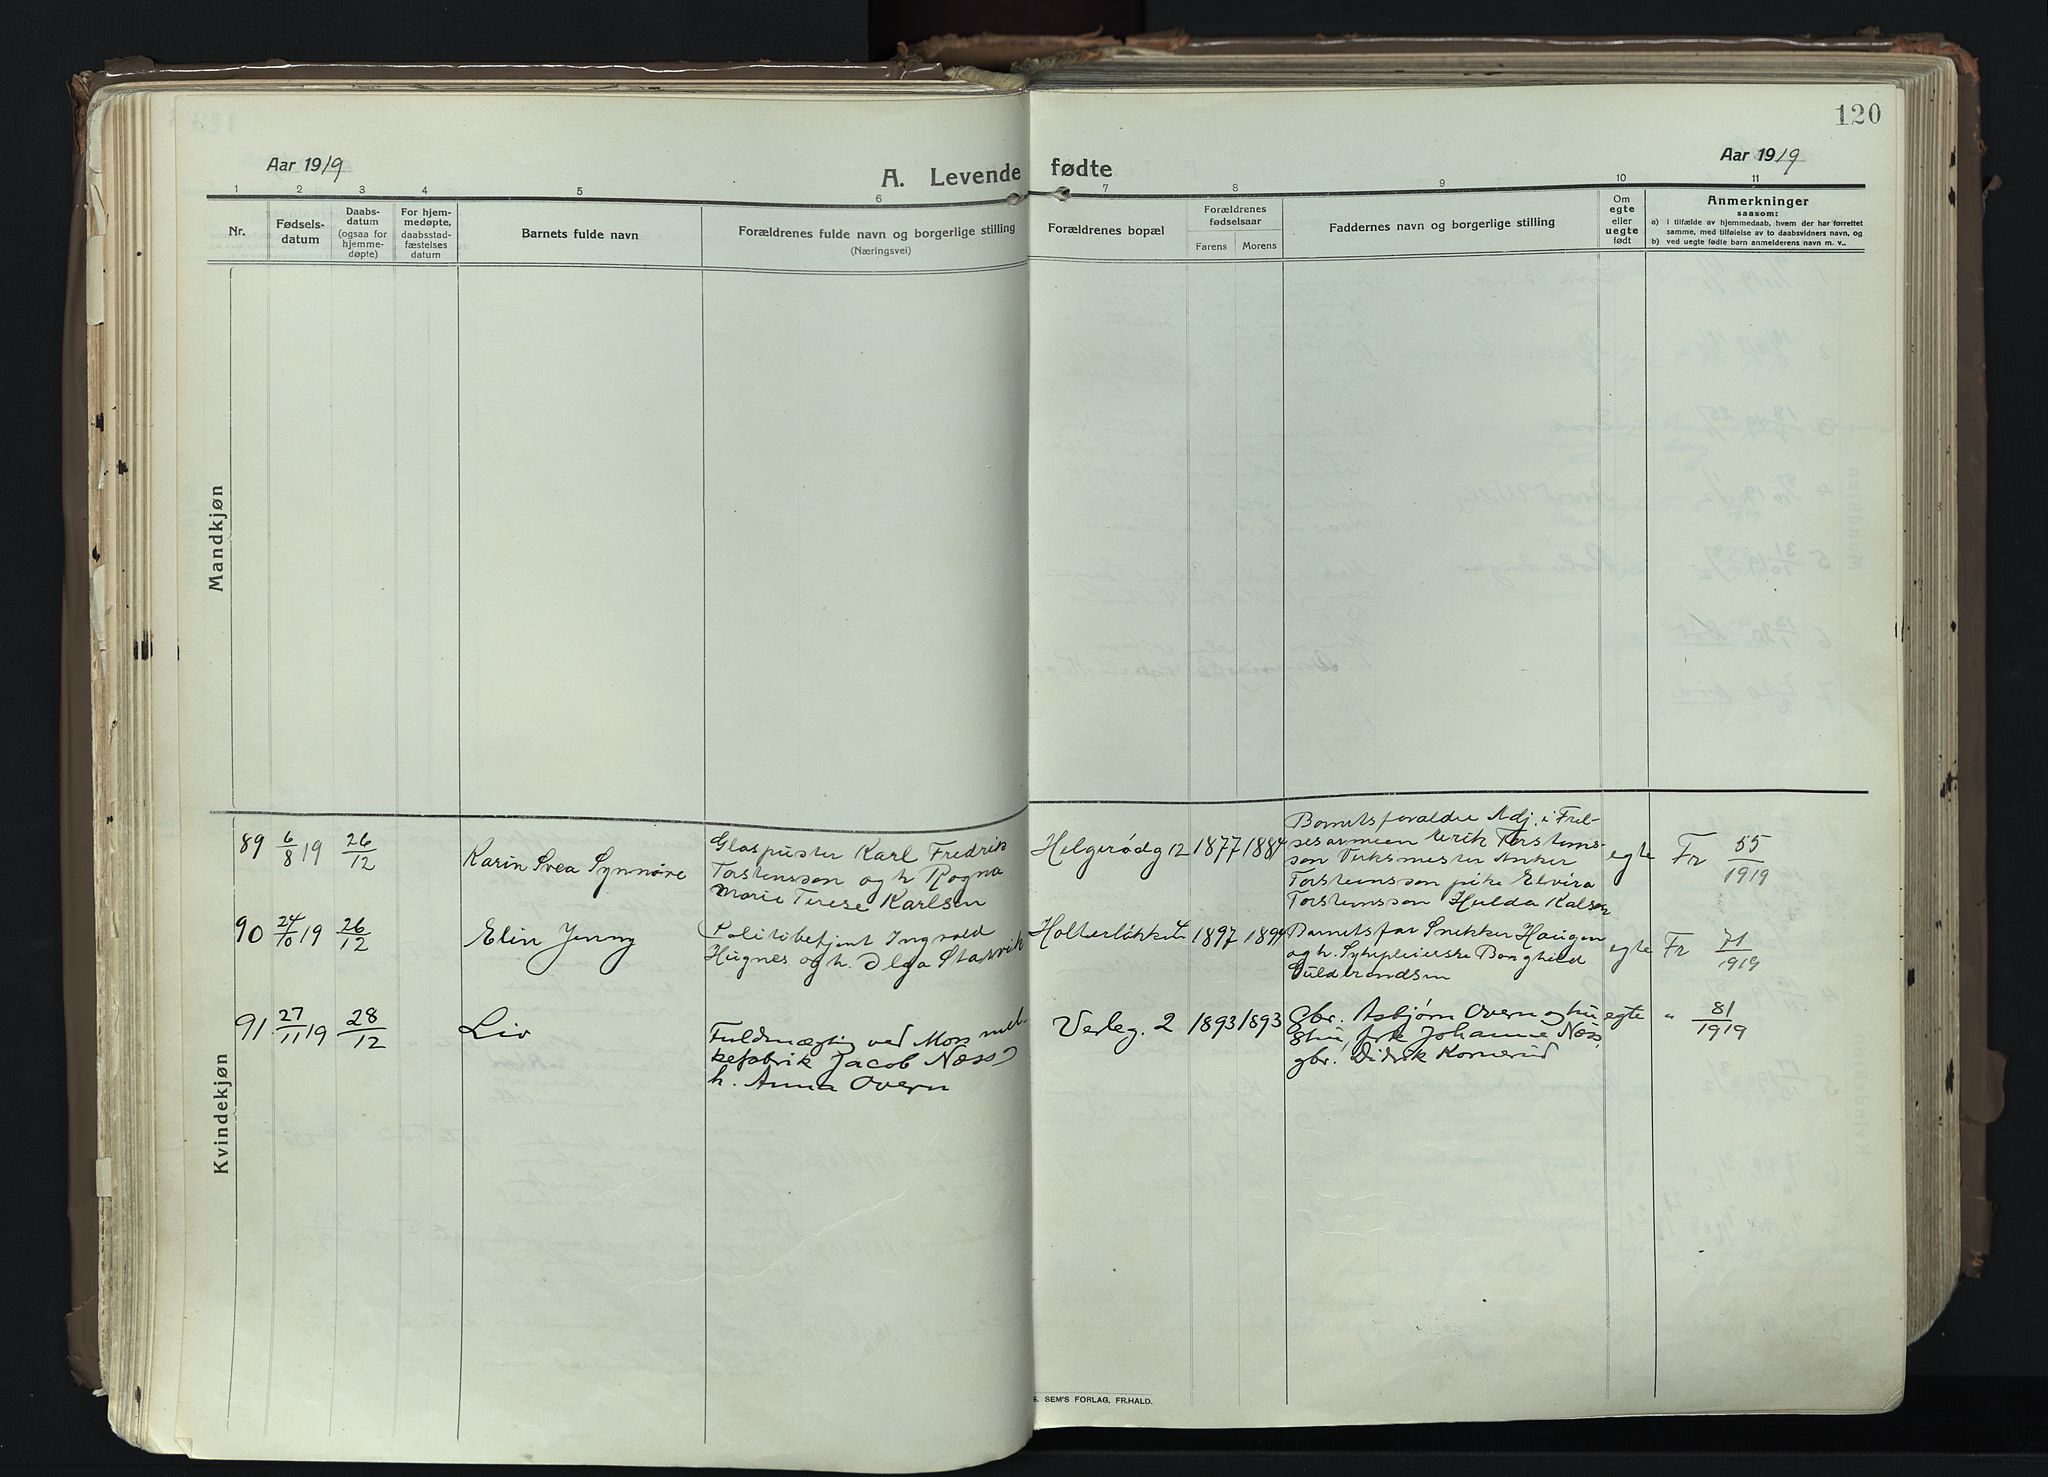 120
Aar 1919
A. Levende fødte
Aar 1919
1 2 3 4 5 6 7 8 9 10 11
Nr.
Fødsels-
datum
Daabs-
datum
(ogsaa for
hjemme-
døpte)
For hjem-
medøpte,
daabsstad-
fæstelses
datum
Barnets fulde navn
Forældrenes fulde navn og borgerlige stilling
(Næringsvei)
Forældrenes bopæl
Forældrenes
fødselsaar
Farens Morens
Faddernes navn og borgerlige stilling
Om
egte
eller
uegte
født
Anmerkninger
saasom:
a) i tilfælde av hjemmedaab, hvem der har forrettet
samme, med tilføielse av to daabsvidners navn, og
b) ved uegte fødte barn anmelderens navn m. v..
Mandkjøn
Kvindekjøn
89 6/8 19 26/12 Karin Svea Synnøve
Glaspuster Karl Fredrik
Torstensson og h. Ragna
Marie Terese Karlsen
Helgerødg 12 1877 1884
Barnets forældre Adj. i Frel-
sesarmeen Erik Torstens-
son Verksmester Anker
Torstensson pike Elvira
Torstensson Hulda Kalsen
egte Fr 55/1919
90 24/10 19 26/12 Elin Jenny
Politibetjent Ingvald
Hugnes og h. Olga Starvik
1897 1894
Barnets far Snekker Haugen
og h. Sykepleierske Borghild
Guldbrandsen
egte Fr 71/1919
91 27/11 19 28/12 Liv
Fuldmægtig ved Moss mel-
kefabrik Jacob Næss
h. Anna Overn
Verleg. 2 1893 1893
Gbr. Asbjørn Overn og hu
stru, frk Johanne Næss,
gbr. Didrik Kornerud
egte " 81/1919
SEM'S FORLAG, FR.HALD.